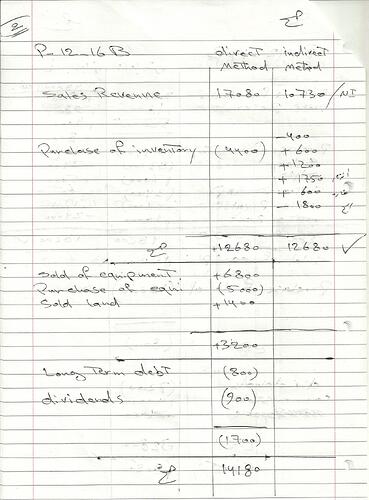 2
P-12-16B direct Method indirect Method
Sales Revenue 17080 10730 / NI
-400
Purchase of inventory (4400) + 600
+ 1200
+ 1750
+ 600
- 1800
+12680 12680 ✓
Sold of equipment. +6800
Purchase of equi (5000)
Sold land +1400
+3200
Long Term debt (800)
dividends (900)
(1700)
14180